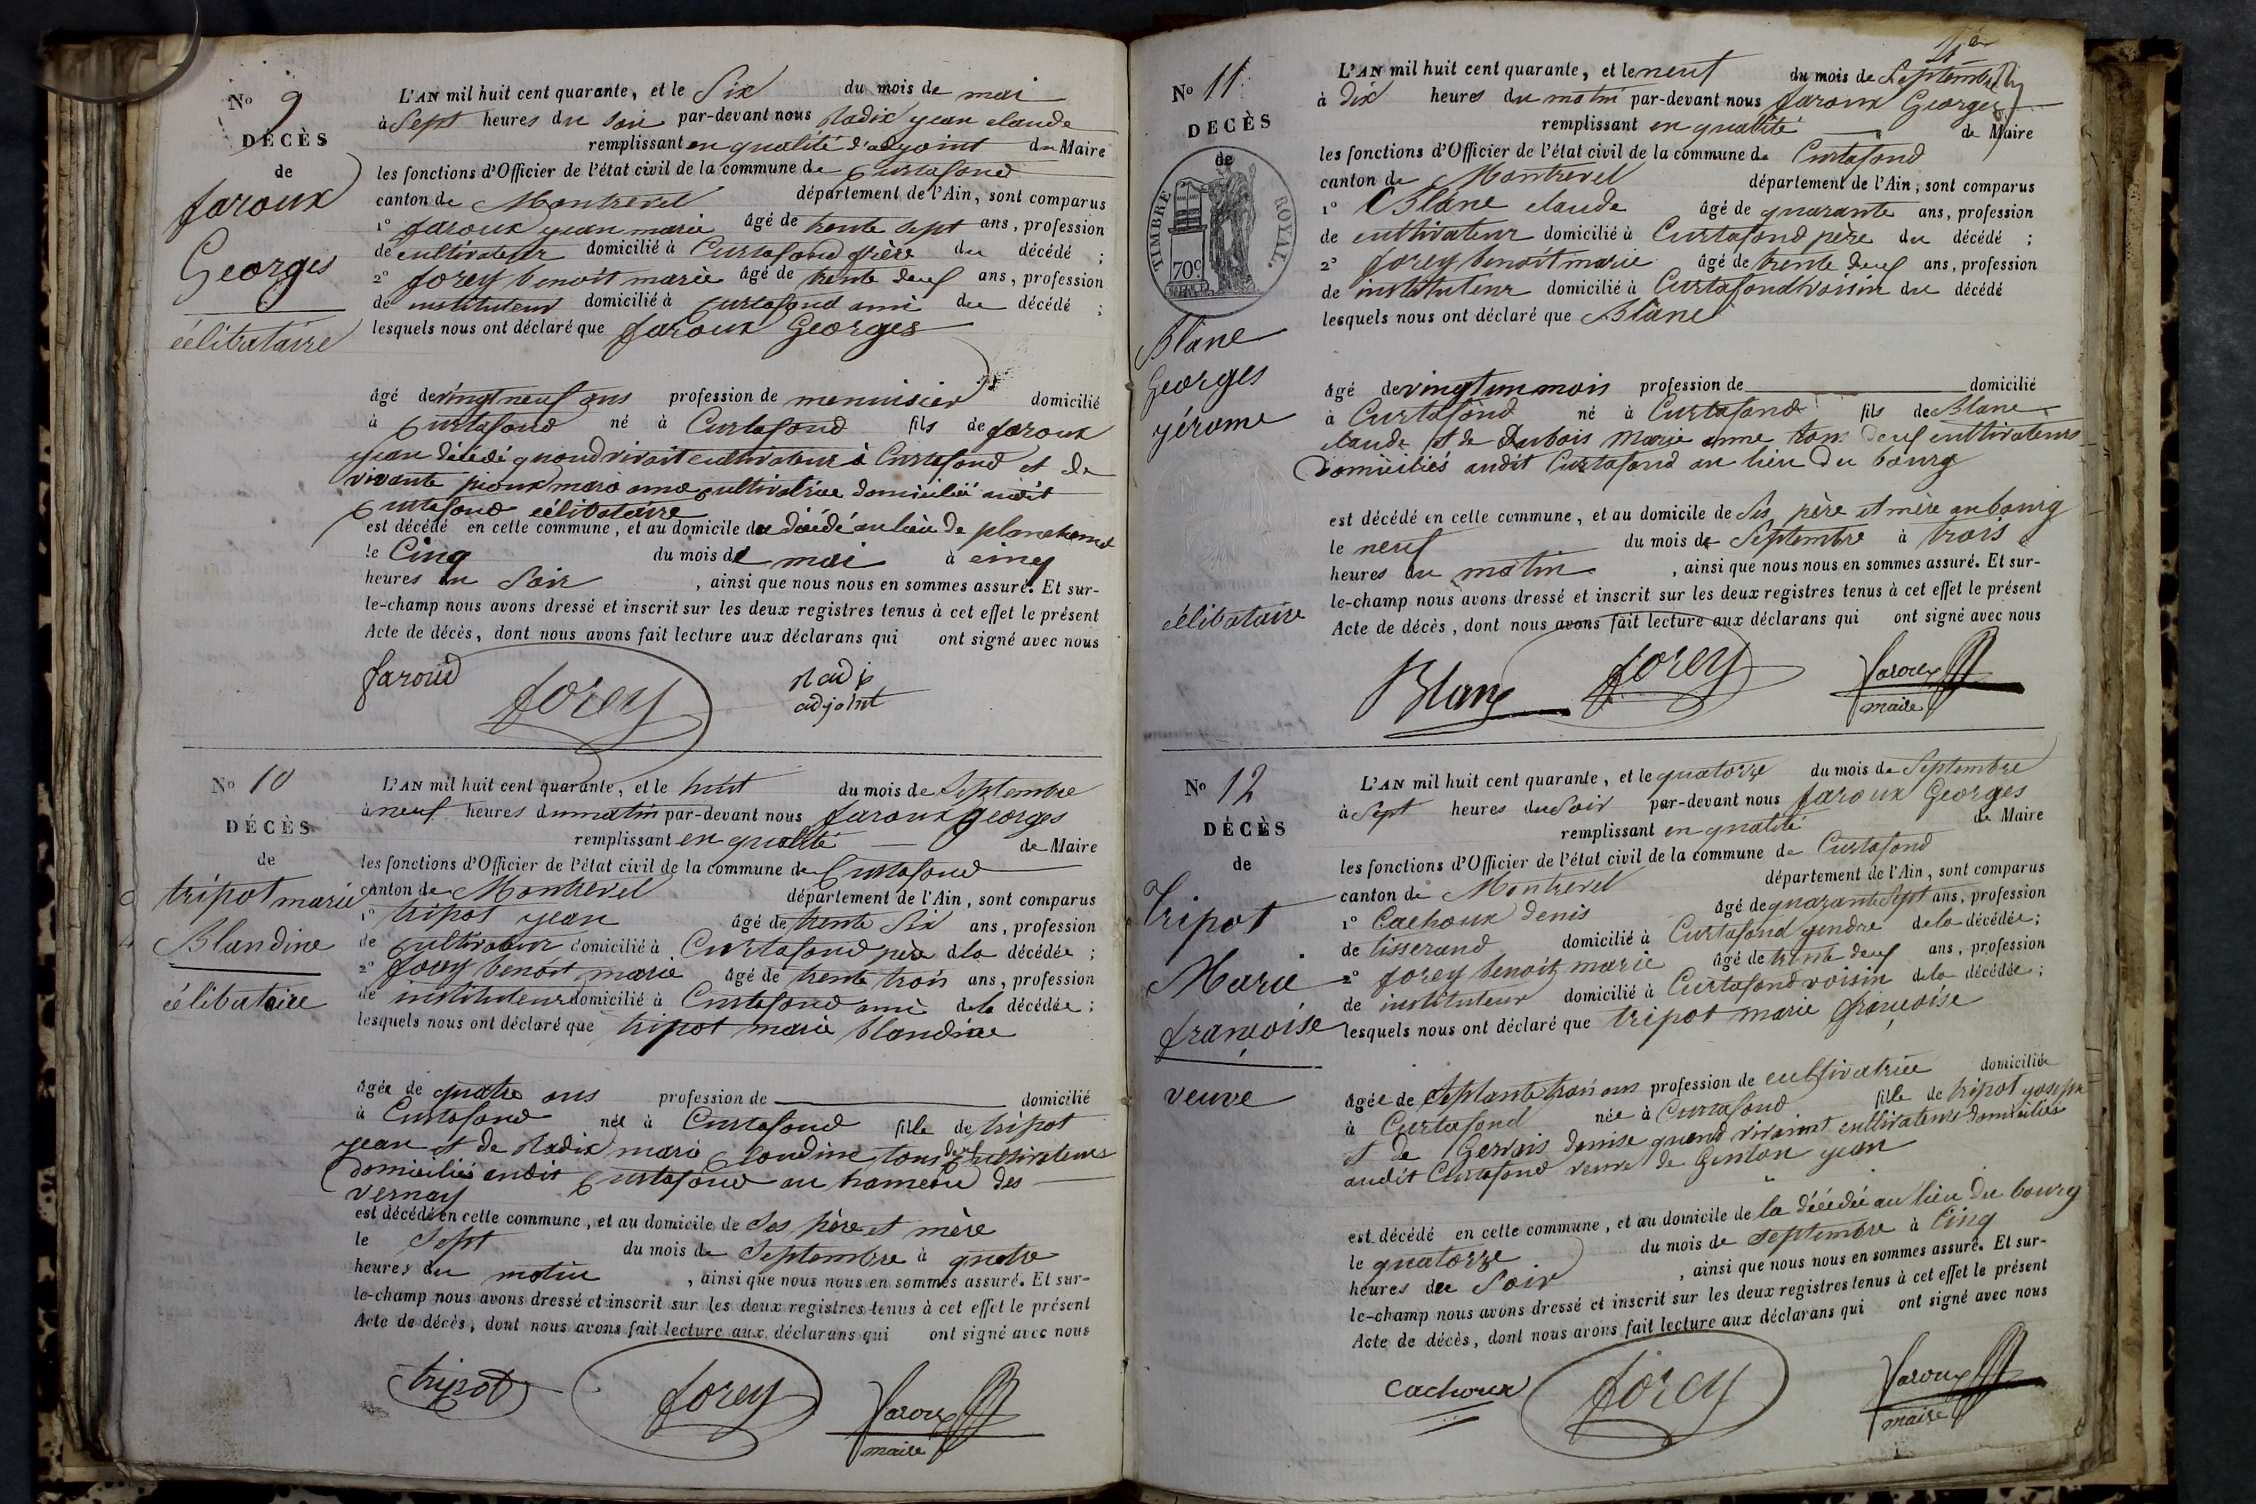 No 9
DÉCÈS
de
faroux
Georges
célibataire
L'AN mil huit cent quarante, et le Six du mois de mai
à Sept heures du soir par-devant nous Nadix jean claude
remplissant en qualité d'adjoint du Maire
les fonctions d'Officier de l'état civil de la commune de Curtafond
canton de Montrevel département de l'Ain, sont comparus
1° faroux jean marie âgé de trente sept ans, profession
de cultivateur domicilié à Curtafond frère du décédé ;
2° forey benoit marie âgé de trente deux ans, profession
de instituteur domicilié à Curtafond ami du décédé ;
lesquels nous ont déclaré que faroux Georges
âgé de vingt neuf ans profession de menuisier domicilié
à Curtafond né à Curtafond fils de faroux
jean décédé quand vivait cultivateur à Curtafond et de
vivante cultivatrice domicilié audit
Curtafond célibataire
est décédé en cette commune, et au domicile du décédé au lieu de
le Cinq du mois de mai à cinq
heures du Soir , ainsi que nous nous en sommes assuré. Et sur-
le-champ nous avons dressé et inscrit sur les deux registres tenus à cet effet le présent
Acte de décès, dont nous avons fait lecture aux déclarans qui ont signé avec nous
faroud forey Nadix
adjoint
No 10
DÉCÈS
de
tripot marie
Blandine
célibataire
L'AN mil huit cent quarante, et le huit du mois de Septembre
à neuf heures du matin par-devant nous faroux georges
remplissant en qualité de Maire
les fonctions d'Officier de l'état civil de la commune de Curtafond
canton de Montrevel département de l'Ain, sont comparus
1° tripot jean âgé de trente Six ans, profession
de cultivateur domicilié à Curtafond père de la décédée ;
2° forey benoit marie âgé de trente trois ans, profession
de instituteur domicilié à Curtafond ami de la décédée ;
lesquels nous ont déclaré que tripot marie blandine
âgée de quatre ans profession de domicilié
à Curtafond née à Curtafond fille de tripot
jean et de Nadix marie Claudine tous deux cultivateurs
domiciliés audit Curtafond au hameau des
vernay
est décédé en cette commune, et au domicile de Ses père et mère
le Sept du mois de Septembre à quatre
heures du matin , ainsi que nous nous en sommes assuré. Et sur-
le-champ nous avons dressé et inscrit sur les deux registres tenus à cet effet le présent
Acte de décès, dont nous avons fait lecture aux déclarans qui ont signé avec nous
tripot forey faroux
maire
No 11
DÉCÈS
de
TIMBRE ROYAL.
70c
Blanc
Georges
jérome
célibataire
L'AN mil huit cent quarante, et le neuf du mois de Septembre
à Dix heures du matin par-devant nous faroux Georges
remplissant en qualité de Maire
les fonctions d'Officier de l'état civil de la commune de Curtafond
canton de Montrevel département de l'Ain, sont comparus
1° Blanc claude âgé de quarante ans, profession
de cultivateur domicilié à Curtafond père du décédé ;
2° forey benoit marie âgé de trente deux ans, profession
de instituteur domicilié à Curtafond voisin du décédé
lesquels nous ont déclaré que Blanc
âgé de vingt un mois profession de domicilié
à Curtafond né à Curtafond fils de Blanc
claude et de Dubois Marie anne tous deux cultivateurs
domiciliés audit Curtafond au lieu du bourg
est décédé en cette commune, et au domicile de Ses père et mère au bourg
le neuf du mois de Septembre à trois
heures du matin , ainsi que nous nous en sommes assuré. Et sur-
le-champ nous avons dressé et inscrit sur les deux registres tenus à cet effet le présent
Acte de décès, dont nous avons fait lecture aux déclarans qui ont signé avec nous
Blanc forey faroux
maire
No 12
DÉCÈS
de
Tripot
Marie
françoise
veuve
L'AN mil huit cent quarante, et le quatorze du mois de Septembre
à Sept heures du Soir par-devant nous faroux Georges
remplissant en qualité de Maire
les fonctions d'Officier de l'état civil de la commune de Curtafond
canton de Montrevel département de l'Ain, sont comparus
1° Cachoux denis âgé de quarante Sept ans, profession
de tisserand domicilié à Curtafond gendre de la décédée ;
2° forey benoit marie âgé de trente deux ans, profession
de instituteur domicilié à Curtafond voisin de la décédée ;
lesquels nous ont déclaré que tripot marie françoise
âgée de Septante trois ans profession de cultivatrice domiciliée
à Curtafond née à Curtafond fille de tripot joseph
et de Gervais denise quand vivaient cultivateurs domiciliés
audit Curtafond veuve de Genton jean
est décédé en cette commune, et au domicile de la décédée au lieu du bourg
le quatorze du mois de Septembre à Cinq
heures du Soir , ainsi que nous nous en sommes assuré. Et sur-
le-champ nous avons dressé et inscrit sur les deux registres tenus à cet effet le présent
Acte de décès, dont nous avons fait lecture aux déclarans qui ont signé avec nous
Cachoux forey faroux
maire